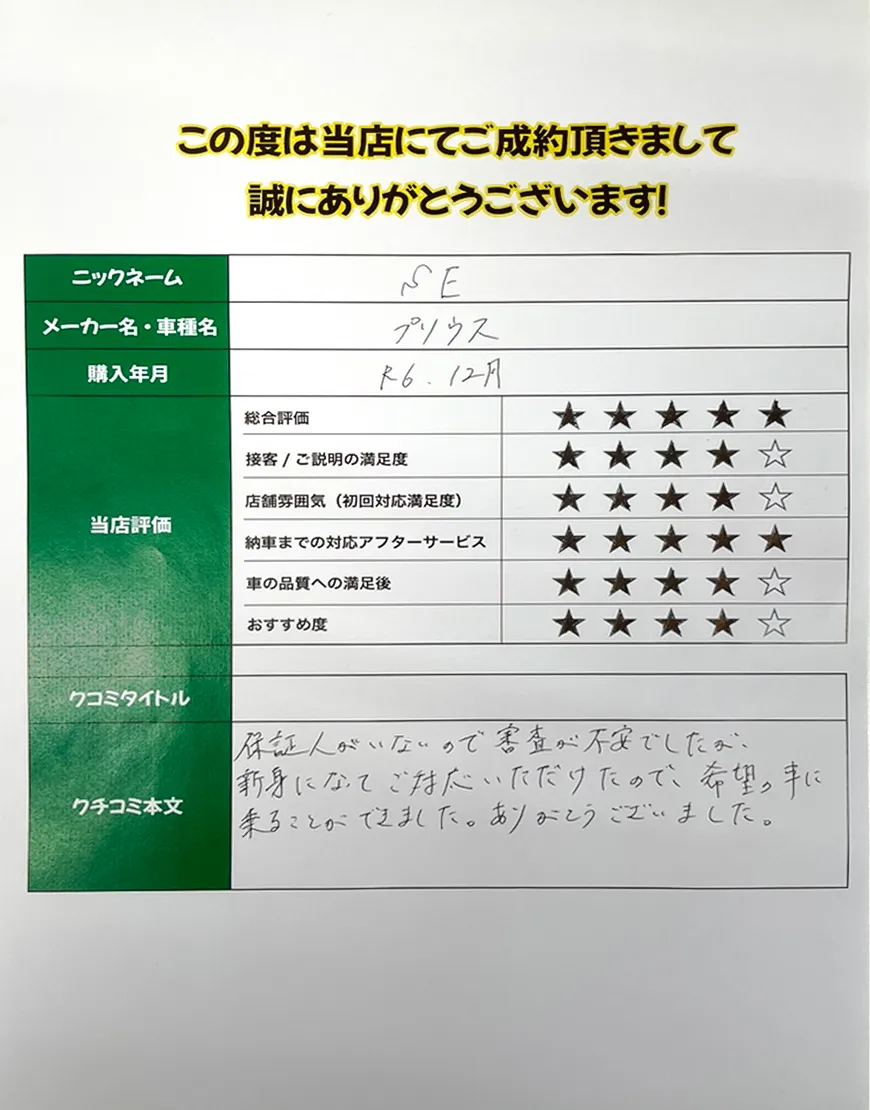 この度は当店にてご成約頂きまして
誠にありがとうございます!
ニックネーム SE
メーカー名・車種名 プリウス
購入年月 R6.12月
当店評価
総合評価 ★★★★★
接客 / ご説明の満足度 ★★★★☆
店舗雰囲気(初回対応満足度) ★★★★☆
納車までの対応アフターサービス ★★★★★
車の品質への満足後 ★★★★☆
おすすめ度 ★★★★☆
クコミタイトル
クチコミ本文
保証人がいないので審査が不安でしたが、
新身になってご対応いただけたので、希望の車に
乗ることができました。ありがとうございました。